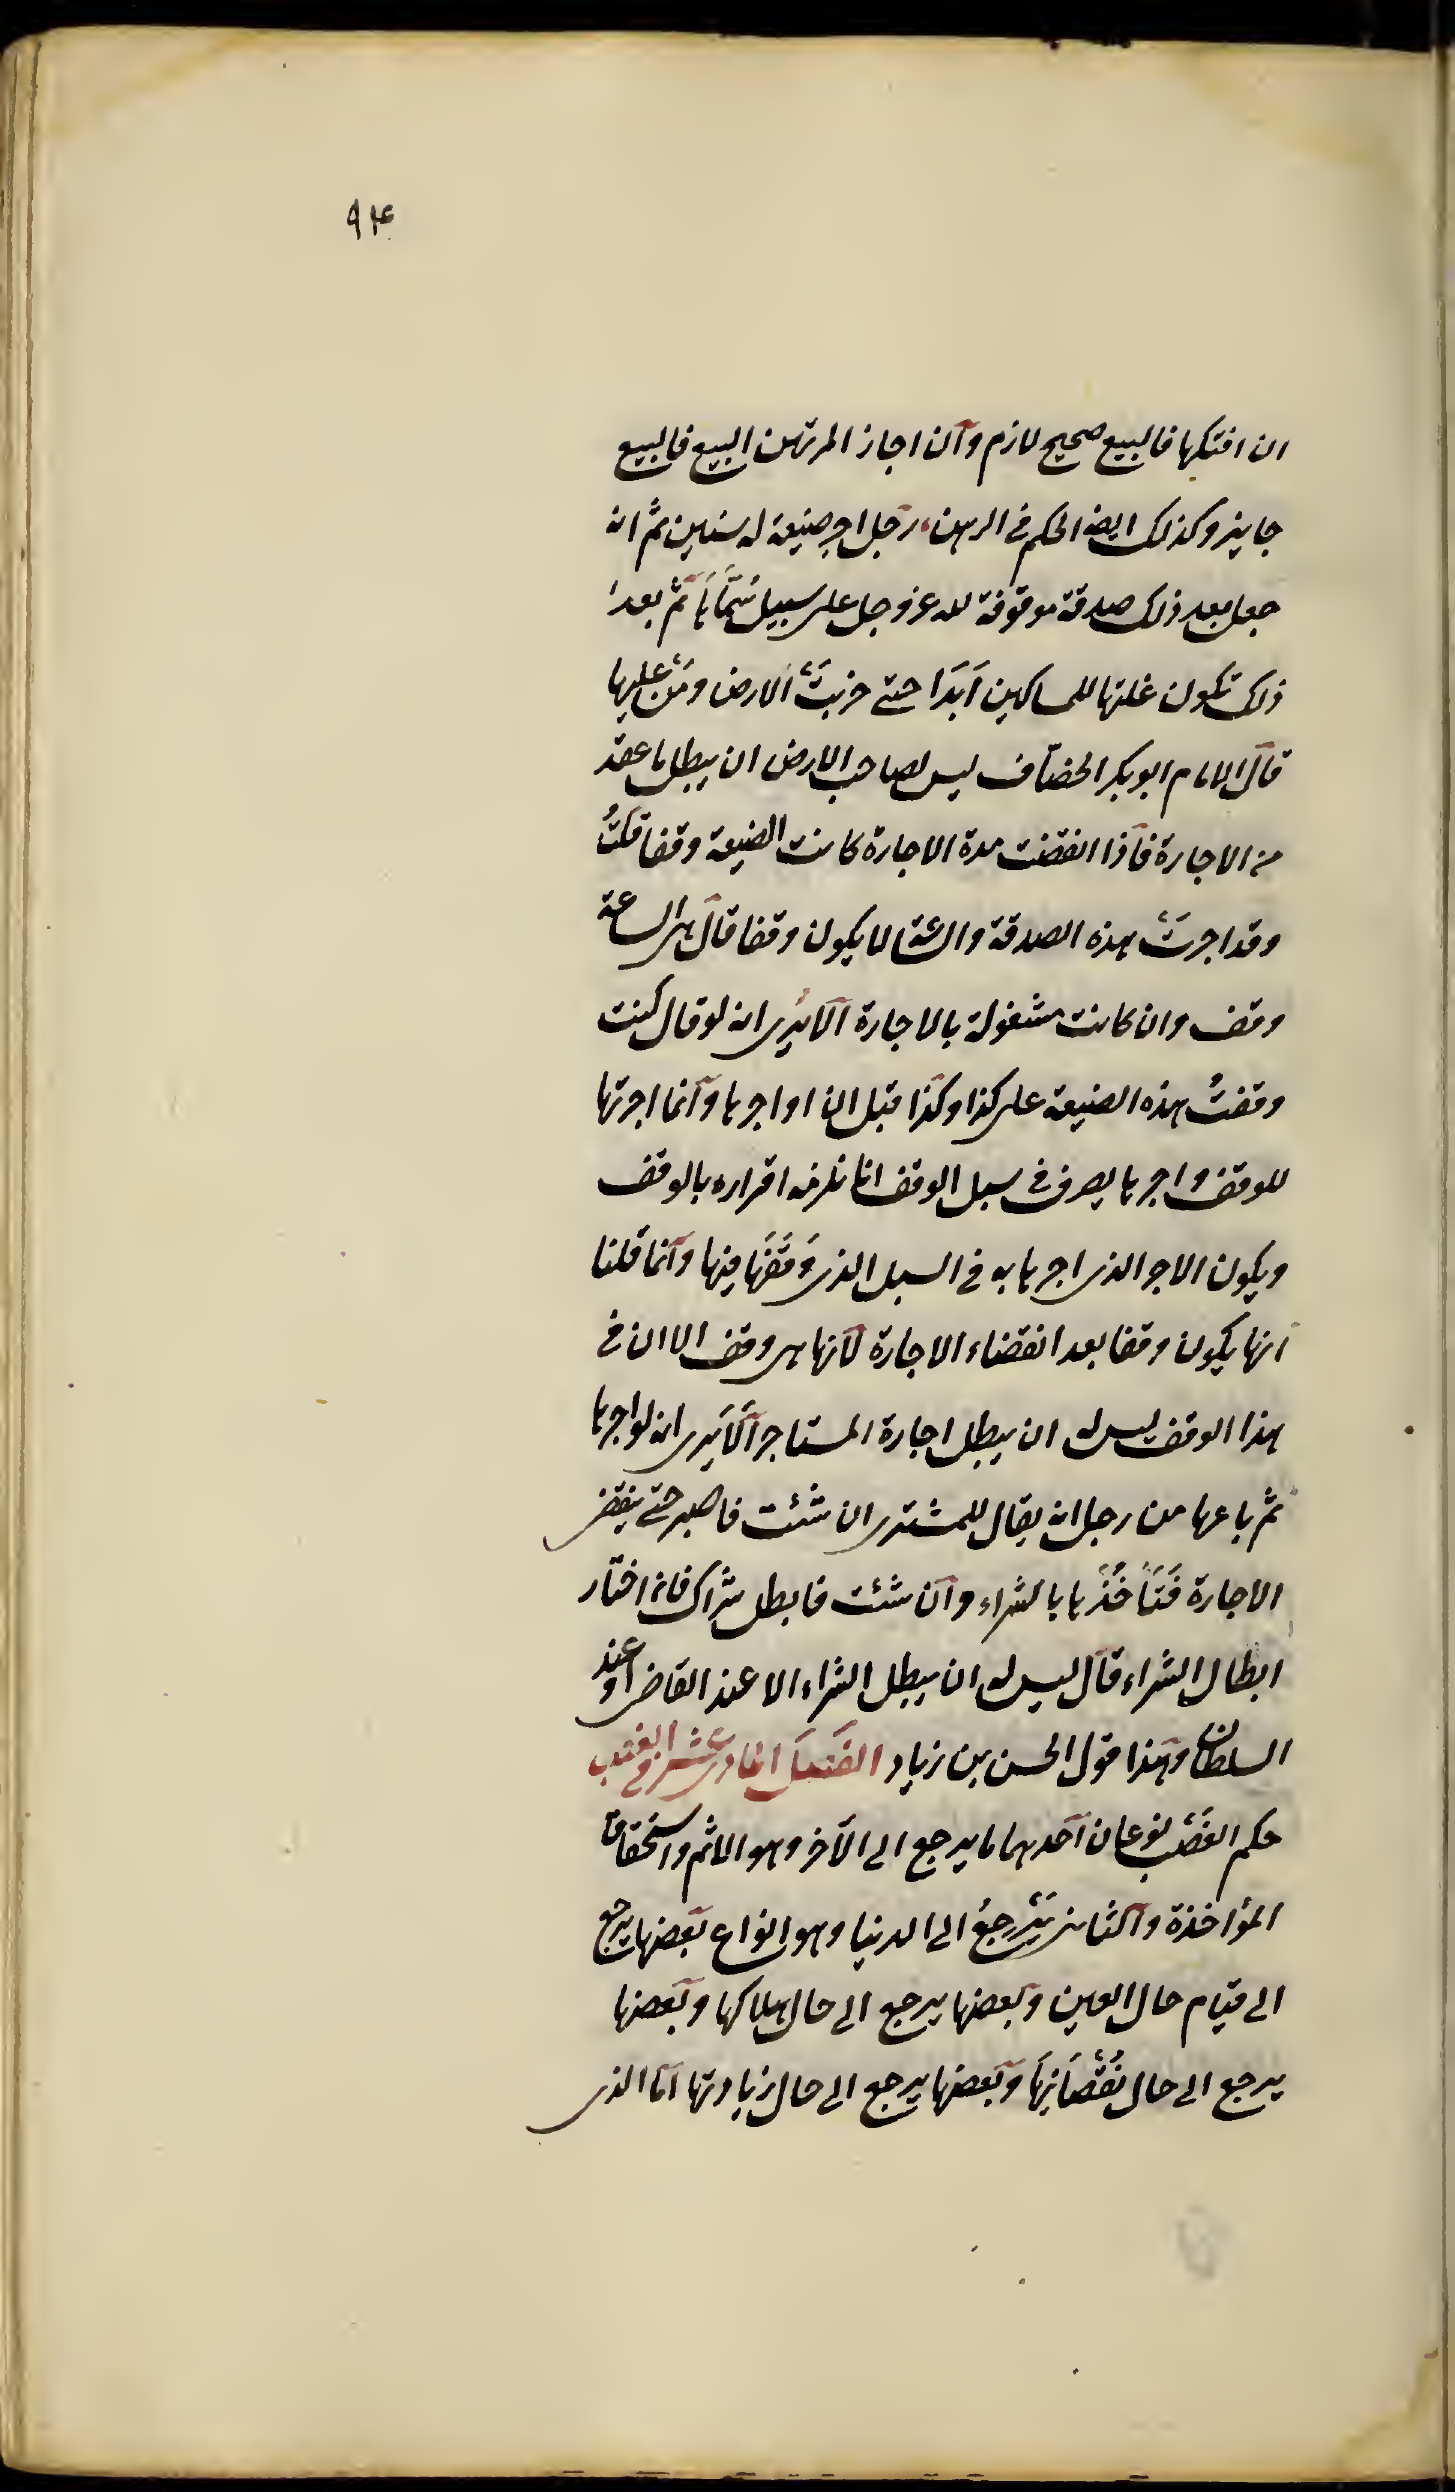 ٩۴
ان افتكها فالبيع صحيح لازم وان اجاز المرتهن البيع فالبيع
جايز وكذلك ايضا الحكم فى الرهن رجل اجر ضيعة له سنين ثم انه
جعل بعد ذلك صدقة موقوفة لله عز وجل على سبيل سماها ثم بعد
ذلك تكون غلتها للمساكين ابدا حتى خربت الارض ومن عليها
قال الامام ابو بكر الخصاف ليس لصاحب الارض ان يبطل ما عقد
من الاجارة فاذا انقضت مدة الاجارة كانت الضيعة وقفا قلت
وقد اجرت هذه الصدقة والشقة لا يكون وقفا قال هى الساعة
وقف وان كانت مشغولة بالاجارة الا يرى انه لو قال كنت
وقفت هذه الضيعة على كذا وكذا قبل ان اواجرها وانما اجرتها
للوقف واجرها يصرف فى سبل الوقف انا نلزمه اقراره بالوقف
ويكون الاجر الذى اجرها به فى السبل الذى وقفها فيها وانما قلنا
انها يكون وقفا بعد انقضاء الاجارة لانها هى وقف الا ان فى
هذا الوقف ليس له ان يبطل اجارة المستاجر الا يرى انه لو اجرها
ثم باعها من رجل انه يقال للمشترى ان شئت فاصبر حتى ينقض
الاجارة فتاخذها بالشراء وان شئت فابطل شراك فان اختار
ابطال الشراء قال ليس له ان يبطل الشراء الا عند القاضى او عند
السلطان وهذا قول الحسن بن زياد الفصل الحادى عشر فى الغصب
حكم الغصب نوعان احدهما ما يرجع الى الآخرة وهو الاثم واستحقاق
المؤاخذة والثانى يرجع الى الدنيا وهو انواع بعضها يرجع
الى قيام حال العين وبعضها يرجع الى حال هلاكها وبعضها
يرجع الى حال نقصانها وبعضها يرجع الى حال زيادتها اما الذى